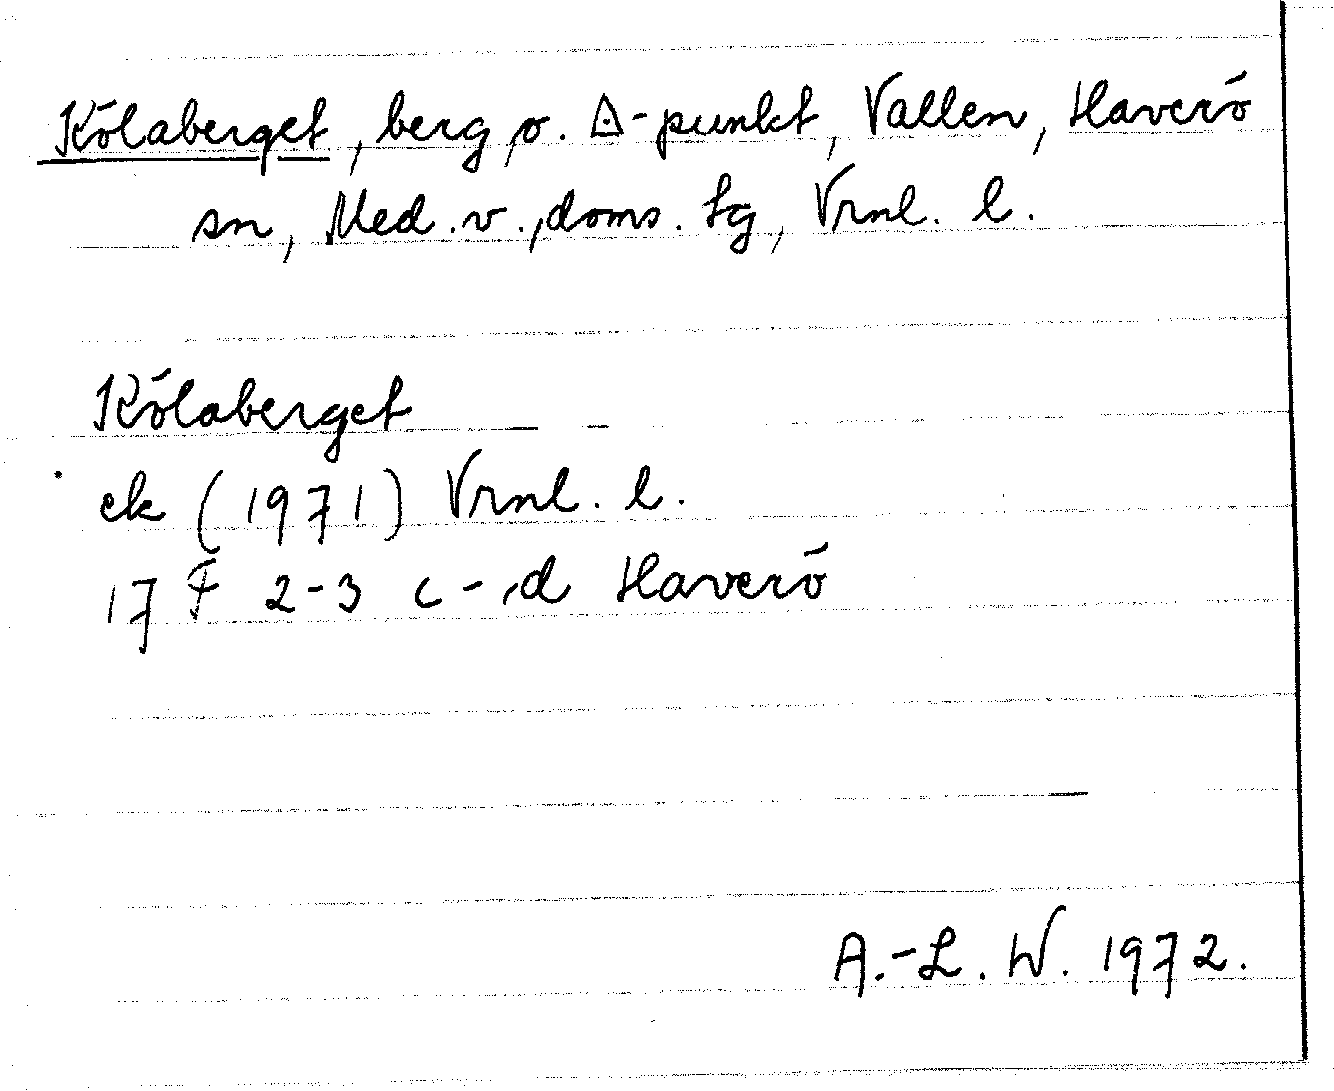 Kölaberget, berg o. ◬-punkt, Vallen, Haverö
sn, Med. v., doms. tg, Vrnl. l.
Kölaberget
ek (1971) Vrnl. l.
17 F 2-3 c-d Haverö
A.-L. W. 1972.